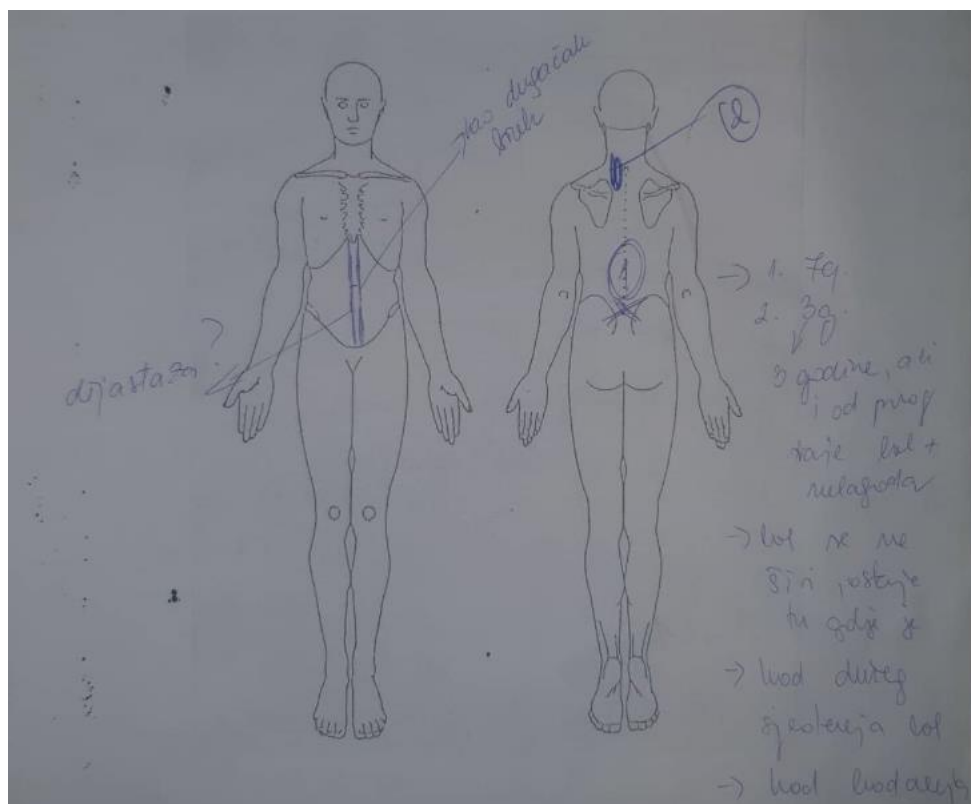 kao dugačak
2
1
dijastaza?
→ 1. 7g.
2. 3g.
3 godine, ali
i od prvog
traje bol +
nelagoda
→ bol se ne
širi, ostaje
tu gdje je
→ kod dužeg
sjedenja bol
→ kod hodanja